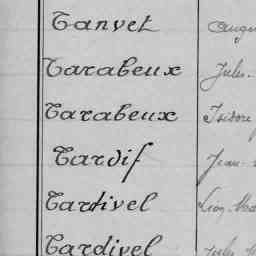 Tanvet
Tarabeux Jules
Tarabeux Isidore
Tardif Jean
Tardivel Léon
Tardivel Jules